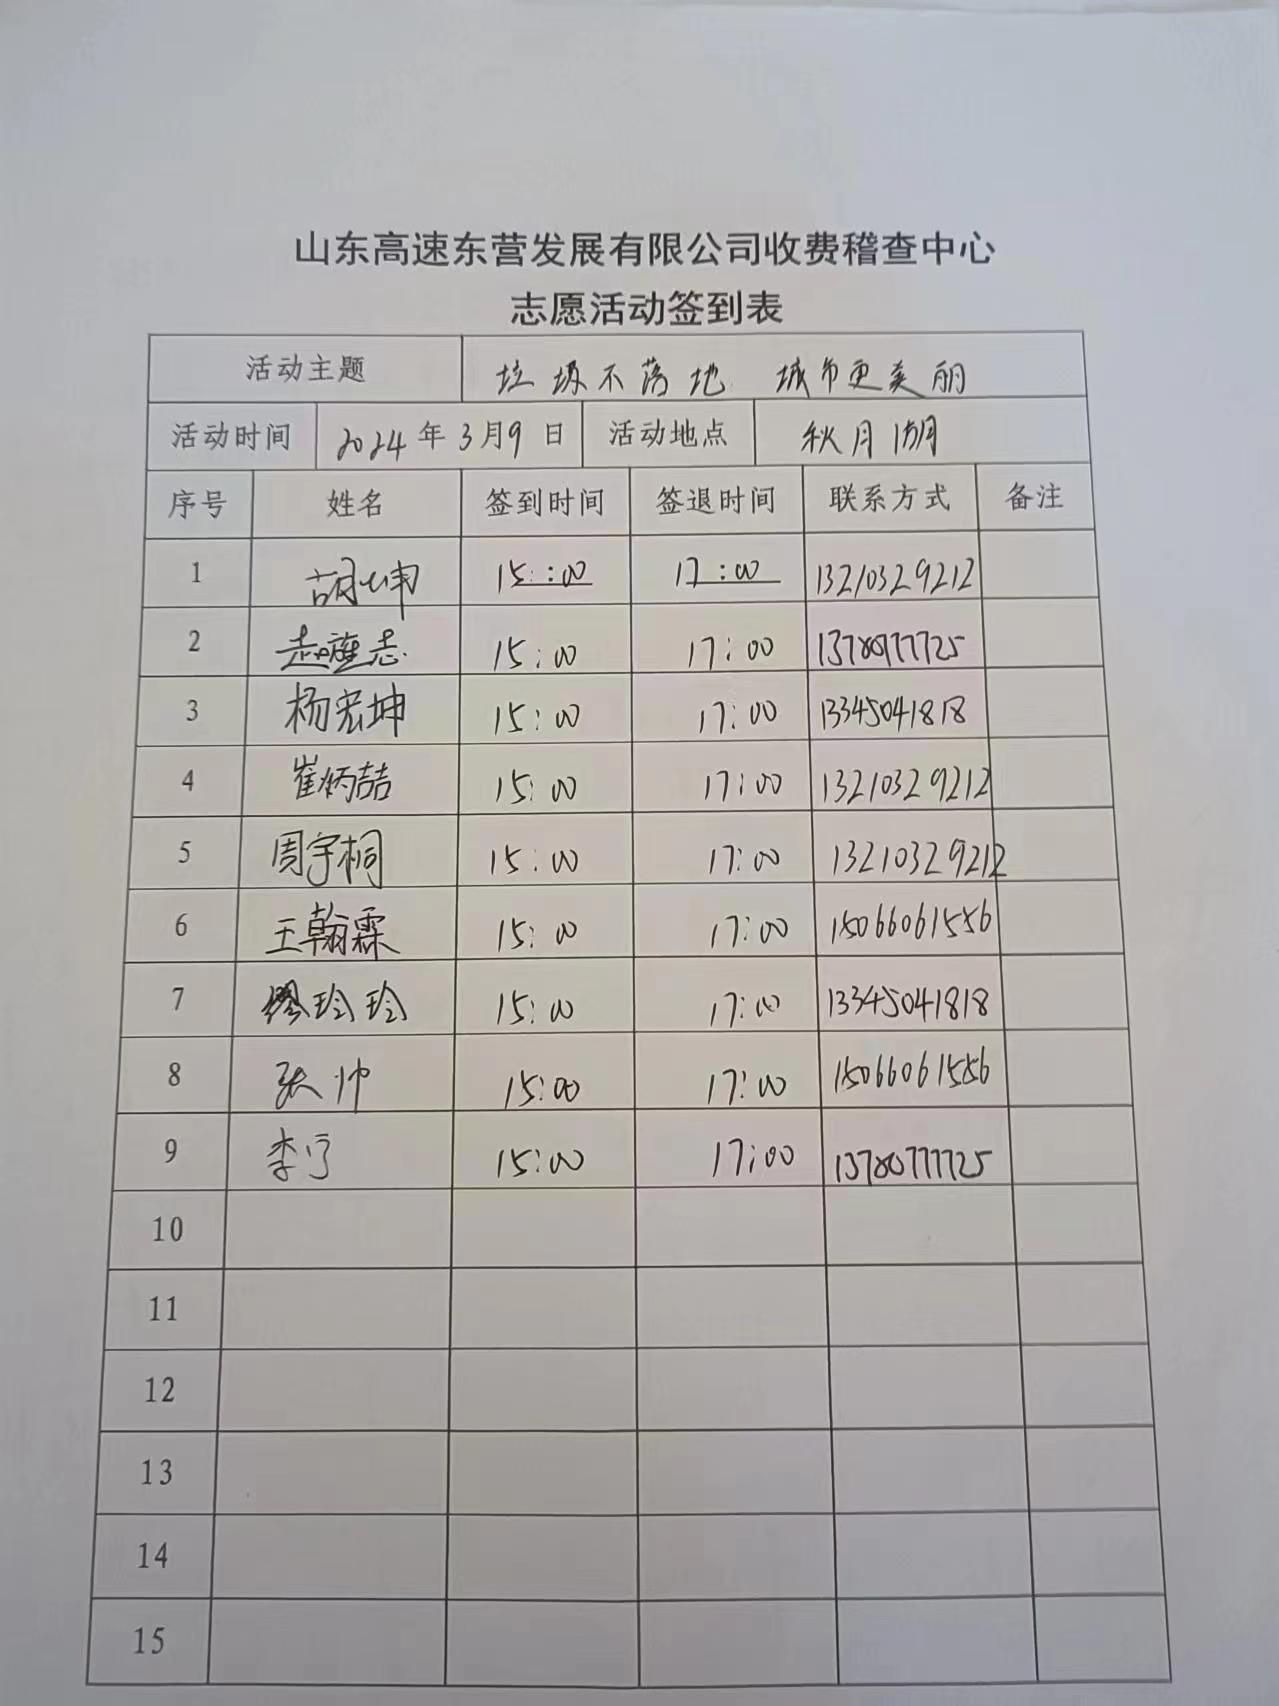 山东高速东营发展有限公司收费稽查中心
志愿活动签到表
活动主题 垃圾不落地 城市更美丽
活动时间 2024年3月9日 活动地点 秋月湖
序号 姓名 签到时间 签退时间 联系方式 备注
1 胡坤 15:00 17:00 13210329212
2 志 15:00 17:00
3 杨宏坤 15:00 17:00 13345041818
4 崔炳喆 15:00 17:00 13210329212
5 周宇桐 15:00 17:00 13210329212
6 王翰霖 15:00 17:00 15066061556
7 缪玲玲 15:00 17:00 13345041818
8 张帅 15:00 17:00 15066061556
9 李宁 15:00 17:00 13780777725
10
11
12
13
14
15